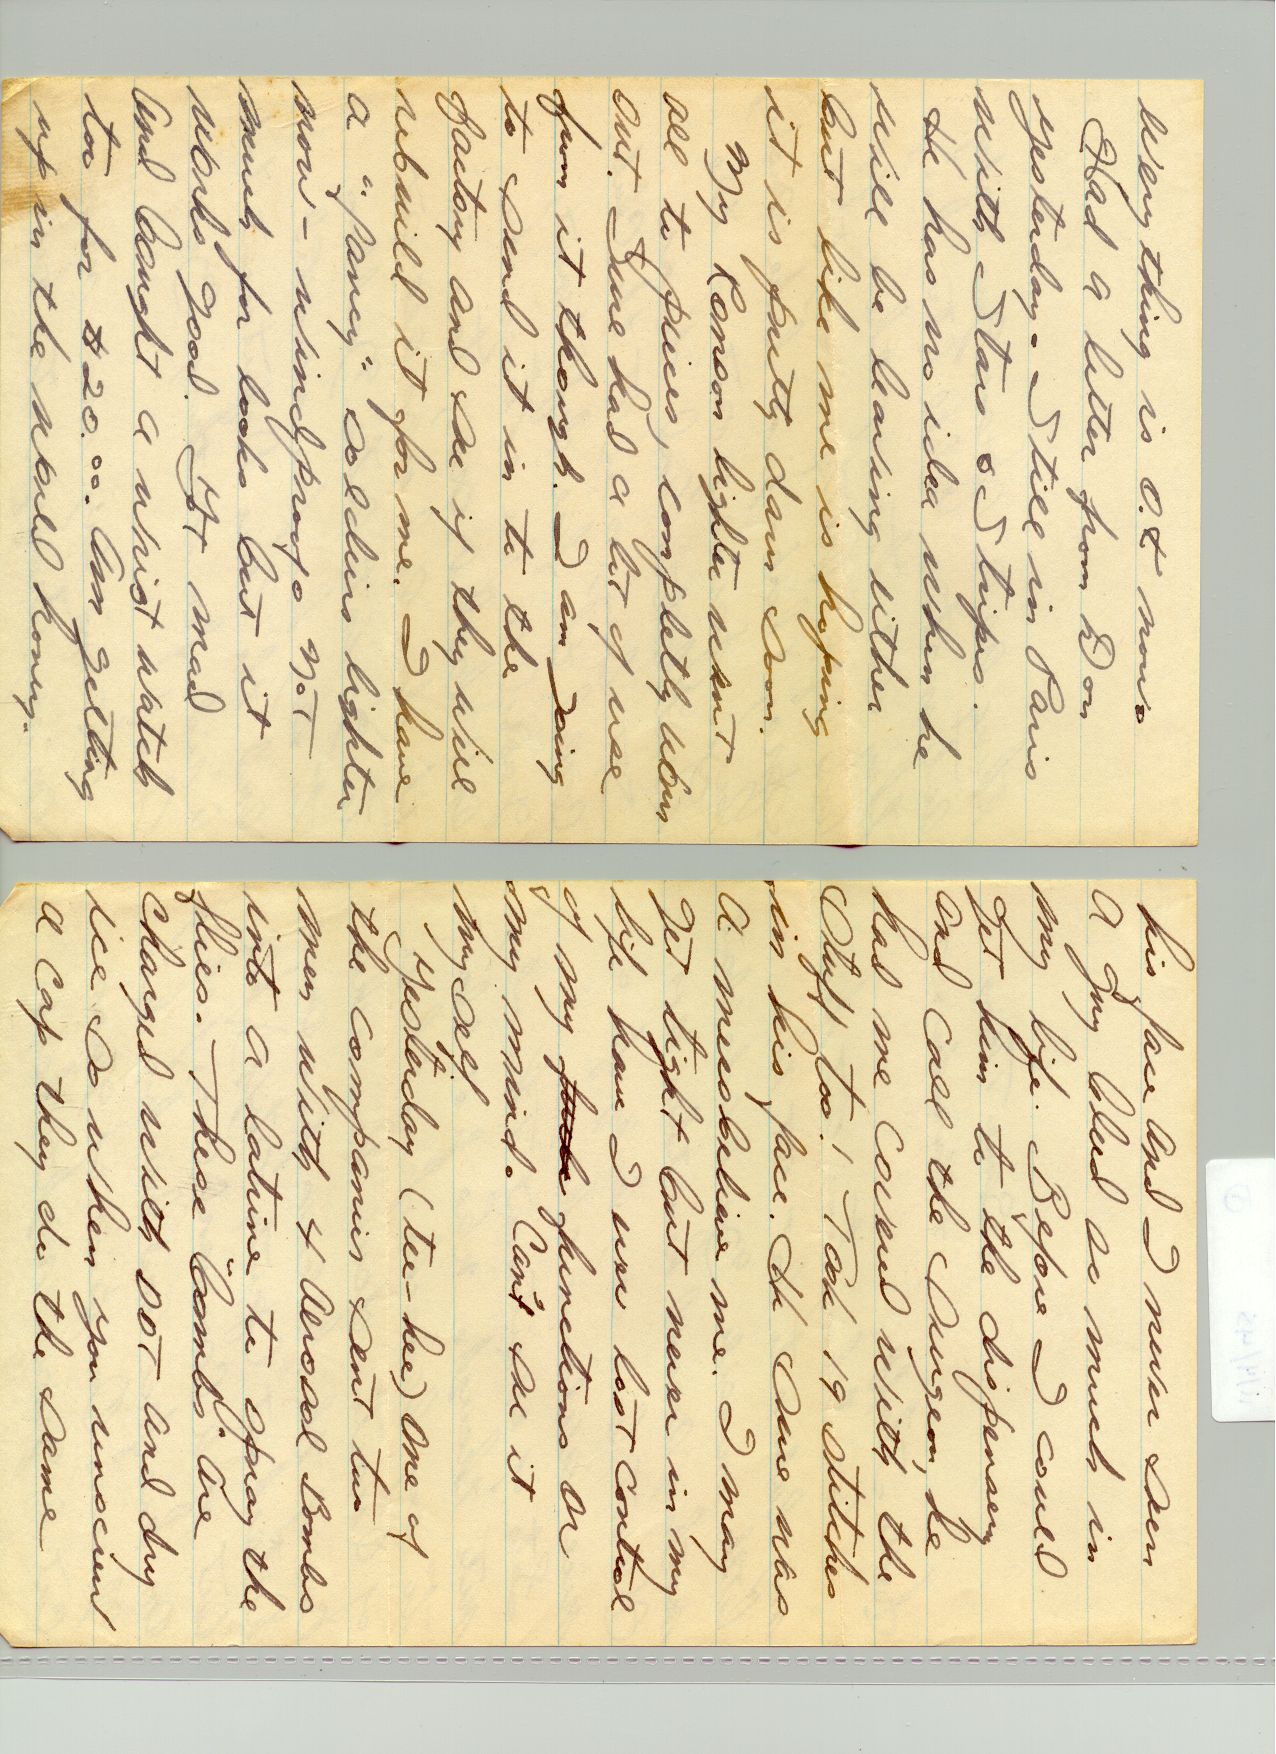 everything is O.K now.
Had a letter from Don
yesterday. Still in Paris
with Stars & Stripes.
He has no idea when he
will be leaving either
but like me is hoping
it is pretty darn soon.
My Ronson lighter went
all to pieces, completly worn
out. Sure had a lot of use
from it though. I am going
to send it in to the
factory and see if they will
rebuild it for me. I have
a "fancy" soldiers lighter
now - windproof & not
much for looks but it
works good. Got mad
and bought a wrist watch
too for $20.00. Am getting
up in the world honey.
his face and I never seen
a guy bleed so much in
my life. Before I could
get him to the dispensery
and call the surgeon, he
had me covered with the
stuff too! Took 19 stitches
in his face. He sure was
a mess believe me. I may
get tight but never in my
life have I ever lost control
of my functions or
my mind. Can't see it
myself
Yesterday (tee-hee) one of
the companies sent two
men with 4 Aerosol Bombs
into a latrine to spray the
flies. These "bombs" are
charged with DDT and dry
ice so when you unscrew
a cap they do the same
11/4/45